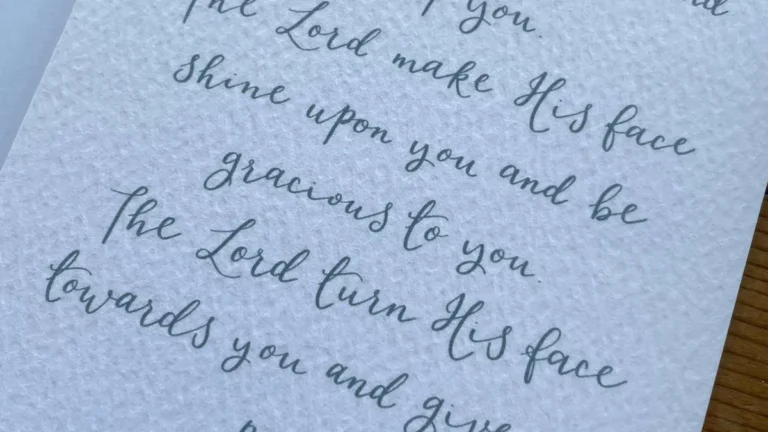 you.
The Lord make His face
shine upon you and be
gracious to you.
The Lord turn His face
towards you and give